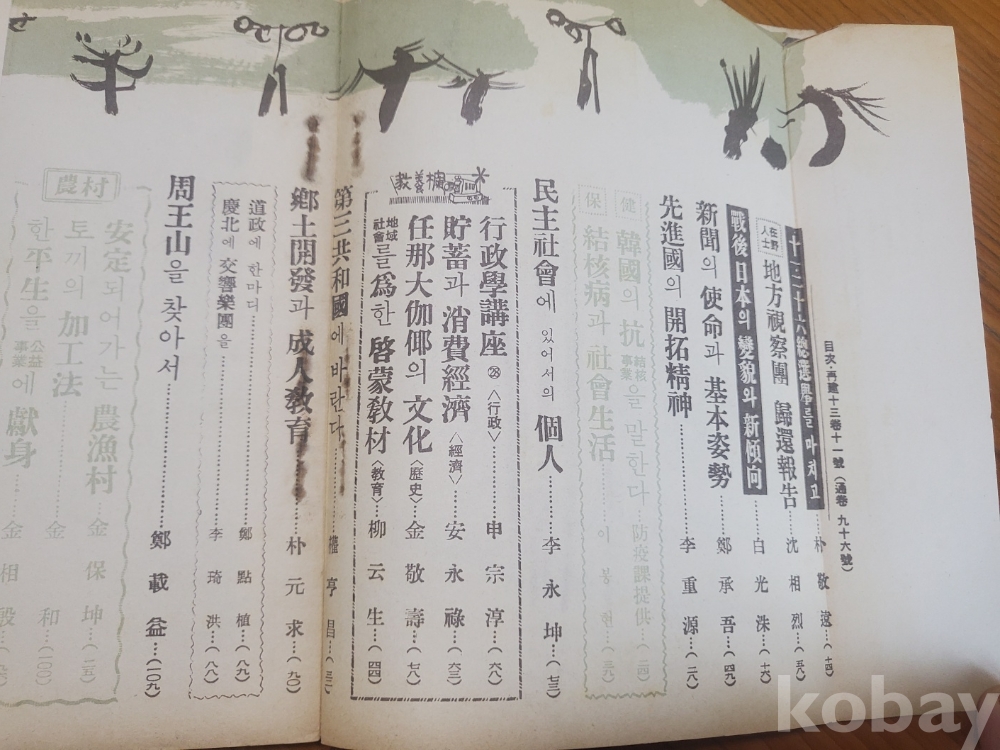 目次·再建十三卷十一號(通卷 九十六號)
十一·二十六總選擧를 마치고 朴敬遠…(一四)
在野人士 地方視察團 歸還報告……沈相烈…(五九)
戰後日本의 變貌와 新傾向……白光洙…(一六)
新聞의 使命과 基本姿勢……鄭承吾…(四九)
先進國의 開拓精神……李重源…(二九)
健 韓國의 抗結核事業을 말한다……防疫課提供…(二四)
保 結核病과 社會生活……이봉현…
民主社會에 있어서의 個人……李永坤…(七三)
敎養欄
行政學講座㉘〈行政〉……申宗淳…(六八)
貯蓄과 消費經濟〈經濟〉……安永祿…(六三)
任那大伽倻의 文化〈歷史〉…金敬壽…(七八)
地域社會를 爲한 啓蒙敎材〈敎育〉…柳云生…(四四)
第三共和國에 바란다……亨昌…
鄕土開發과 成人敎育……朴元求…(九〇)
道政에 한마디……鄭點植…(八九)
慶北에 交響樂團을……李琦洪…(八八)
周王山을 찾아서……鄭載益…(一〇九)
農村
安定되어가는 農漁村…金保坤…(二五)
토끼의 加工法……金 和…(一〇〇)
한平生을 公益事業에 獻身…金相殷
kobay